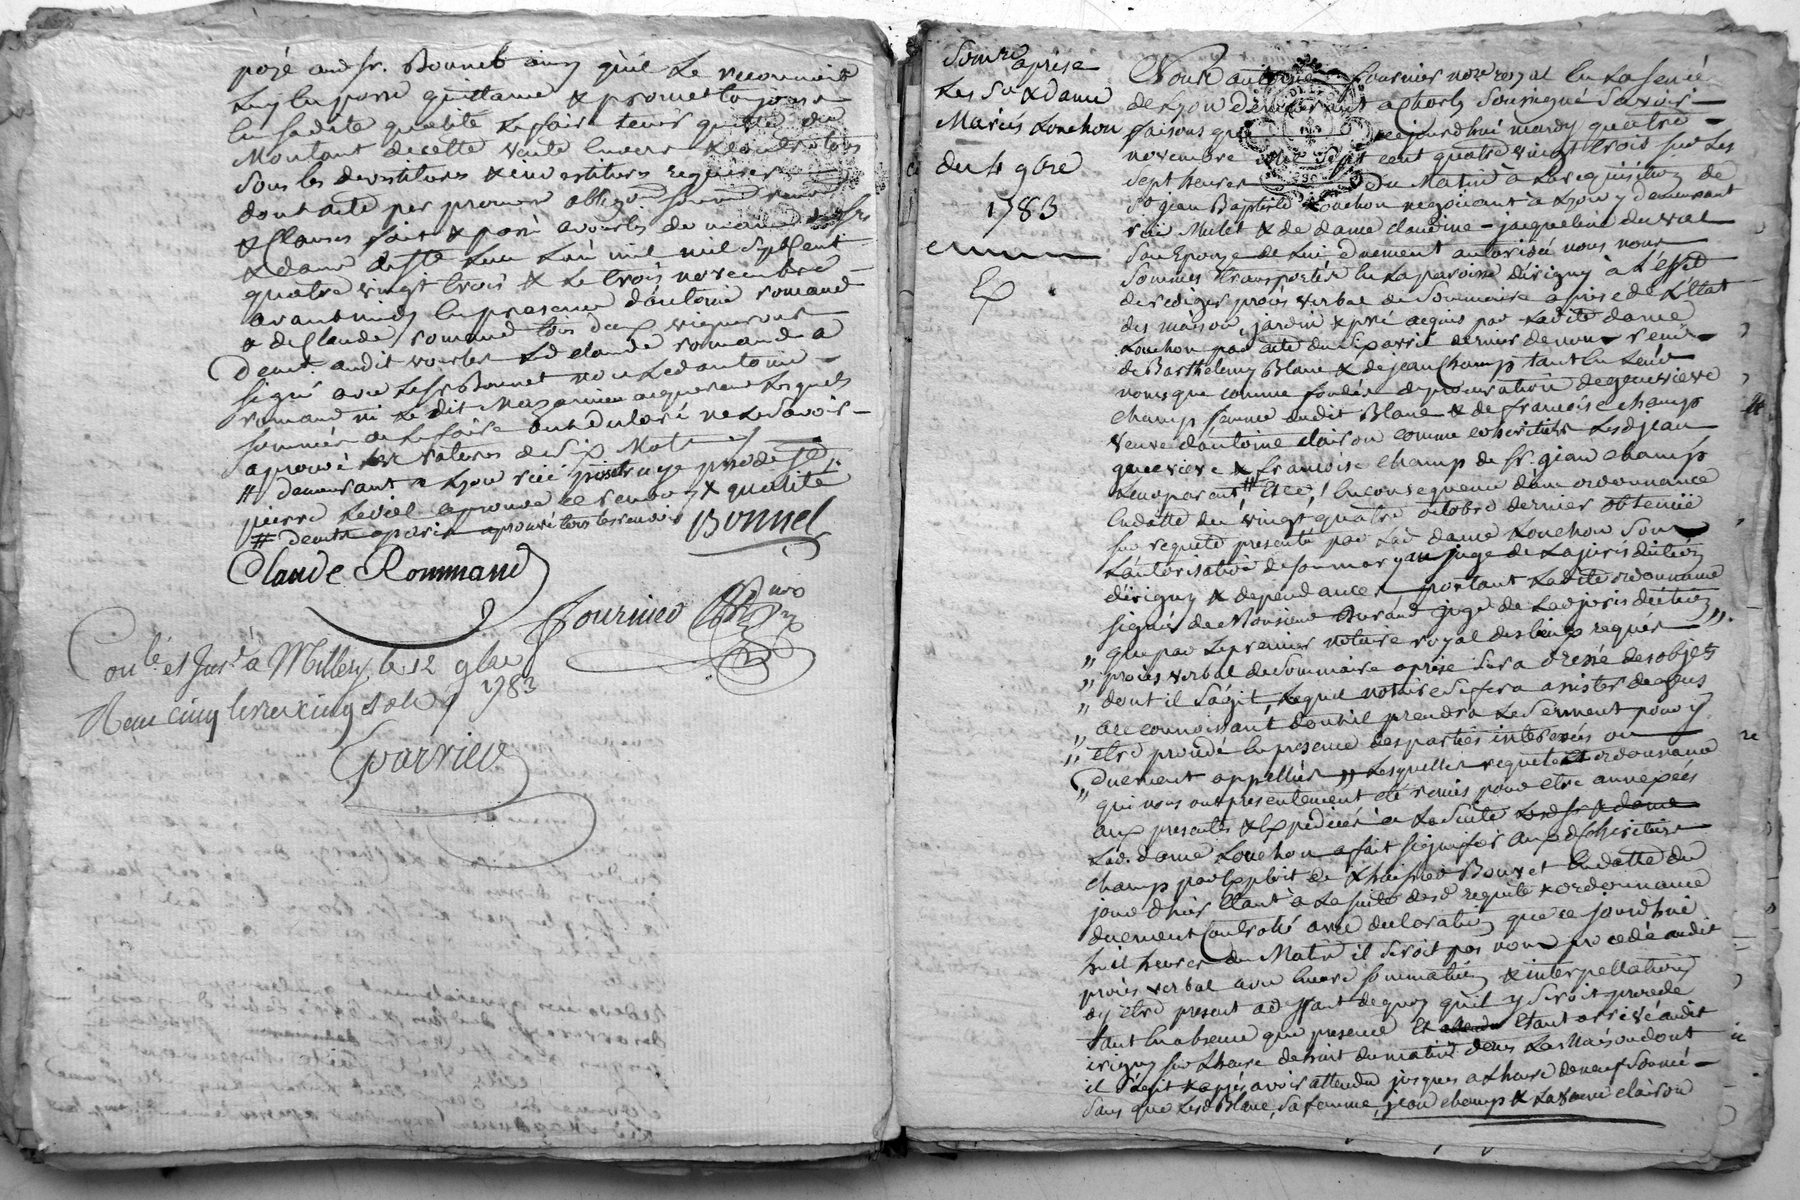 payé aud Sr. Bonnet ainsy qu'il Le reconnoit
Luy En passe quittance & promet toujours
En sadite qualité Le faire tenir quitte du
Montant de cette vente Envers & contre tous
Sous les devestitures & investitures requises
dont acte par promesse oblig.on
& Clauses fait & passé
& dame
quatre vingt trois & Le trois novembre
avant midy En presence d'antoine romand
& de Claude romand tous deux vignerons
Demt. audit Led Claude romand a
signé avec Le Sr Bonnet non Led antoine
romand ni Le dit acquereur Lesquels
sommés de Le faire ont declaré ne Le Scavoir
aprouvé Les ratures de Six Mots
# demeurant a Lyon rüe
pierre aprouvé ce renvoy & qualité
# aprouvé tous les renvois Bonnet
Claude Rommand
Fournier
Con.lé et Ins.é à Millery, le 12 9bre
1783
Reçu cinq livres cinq sols
Som.re aprise
Les Sr & dame
Mariés Louchon
du 4 9bre
1783
Nous antoine fournier no.re royal En La Sené.
de Lyon demeurant a Charly Soussigné Scavoir
faisons que cejourdhui mardy quatre
novembre mil Sept cent quatre vingt trois sur Les
Sept heures du Matin à La requisition de
Sr jean Baptiste Louchon negotiant a Lyon y demeurant
rüe Mulet & de dame claudine jacqueline duvial
Son Epouse de Lui düement autorisée nous nous
Sommes transportés En La paroisse d'irigny à L'effet
de rediger procès verbal de Sommaire aprise de L'Etat
des maison, jardin & pré acquis par Ladite dame
Louchon par acte du Six avril dernier de nous reçu
de Barthelemy Blanc & de jean Champ tant En Leurs
noms que comme fondés de procuration de genevieve
Champ femme dudit Blanc & de françoise champ
veuve d'antoine claison comme coheritiers Lesd jean
genevieve & françoise champ de Sr. jean champ
Leur parent # & ce, En consequence d'une ordonnance
En datte du vingt quatre octobre dernier obtenüe
sur requete presentée par Lad dame Louchon Sous
L'autorisation de Son mary au juge de La jurisdiction
d'irigny & dependances portant Ladite ordonnance
signée de Monsieur Durand juge de Lad jurisdiction,,
,, que par Le premier notaire royal des lieux requis
,, procès verbal de Sommaire aprise Sera dressé des objets
,, dont il S'agit, Lequel notaire Se fera assister de gens
,, a ce connoissant dont il prendra Le Serment pour y
,, etre procedé En presence des parties interessées ou
,, Duement appellées ,, Lesquelles requete & ordonnance
,, qui nous ont presentement eté remises pour etre annexées
aux presentes & Expediées à La Suite Lesd Sr & dame
Lad. dame Louchon a fait signifier aux d heritiers
champ par Exploit de L'huissier Bouvet En datte du
jour d'hier Etant à La Suite desd requete & ordonnance
duement Controllé avec declaration que ce jourdhui
huit heures du Matin il Seroit par nous procedé audit
procès verbal avec Encore sommation & interpellation
d'y etre present ad faute de quoy qu'il y Seroit procedé
tant En absence que presence Et Etant arrivé audit
irigny sur L'heure de huit du matin dans La Maison dont
il S'agit & après avoir attendu jusques a L'heure de neuf Sonnée
Sans que Lesd Blanc, Sa femme, jean champ & La veuve claison